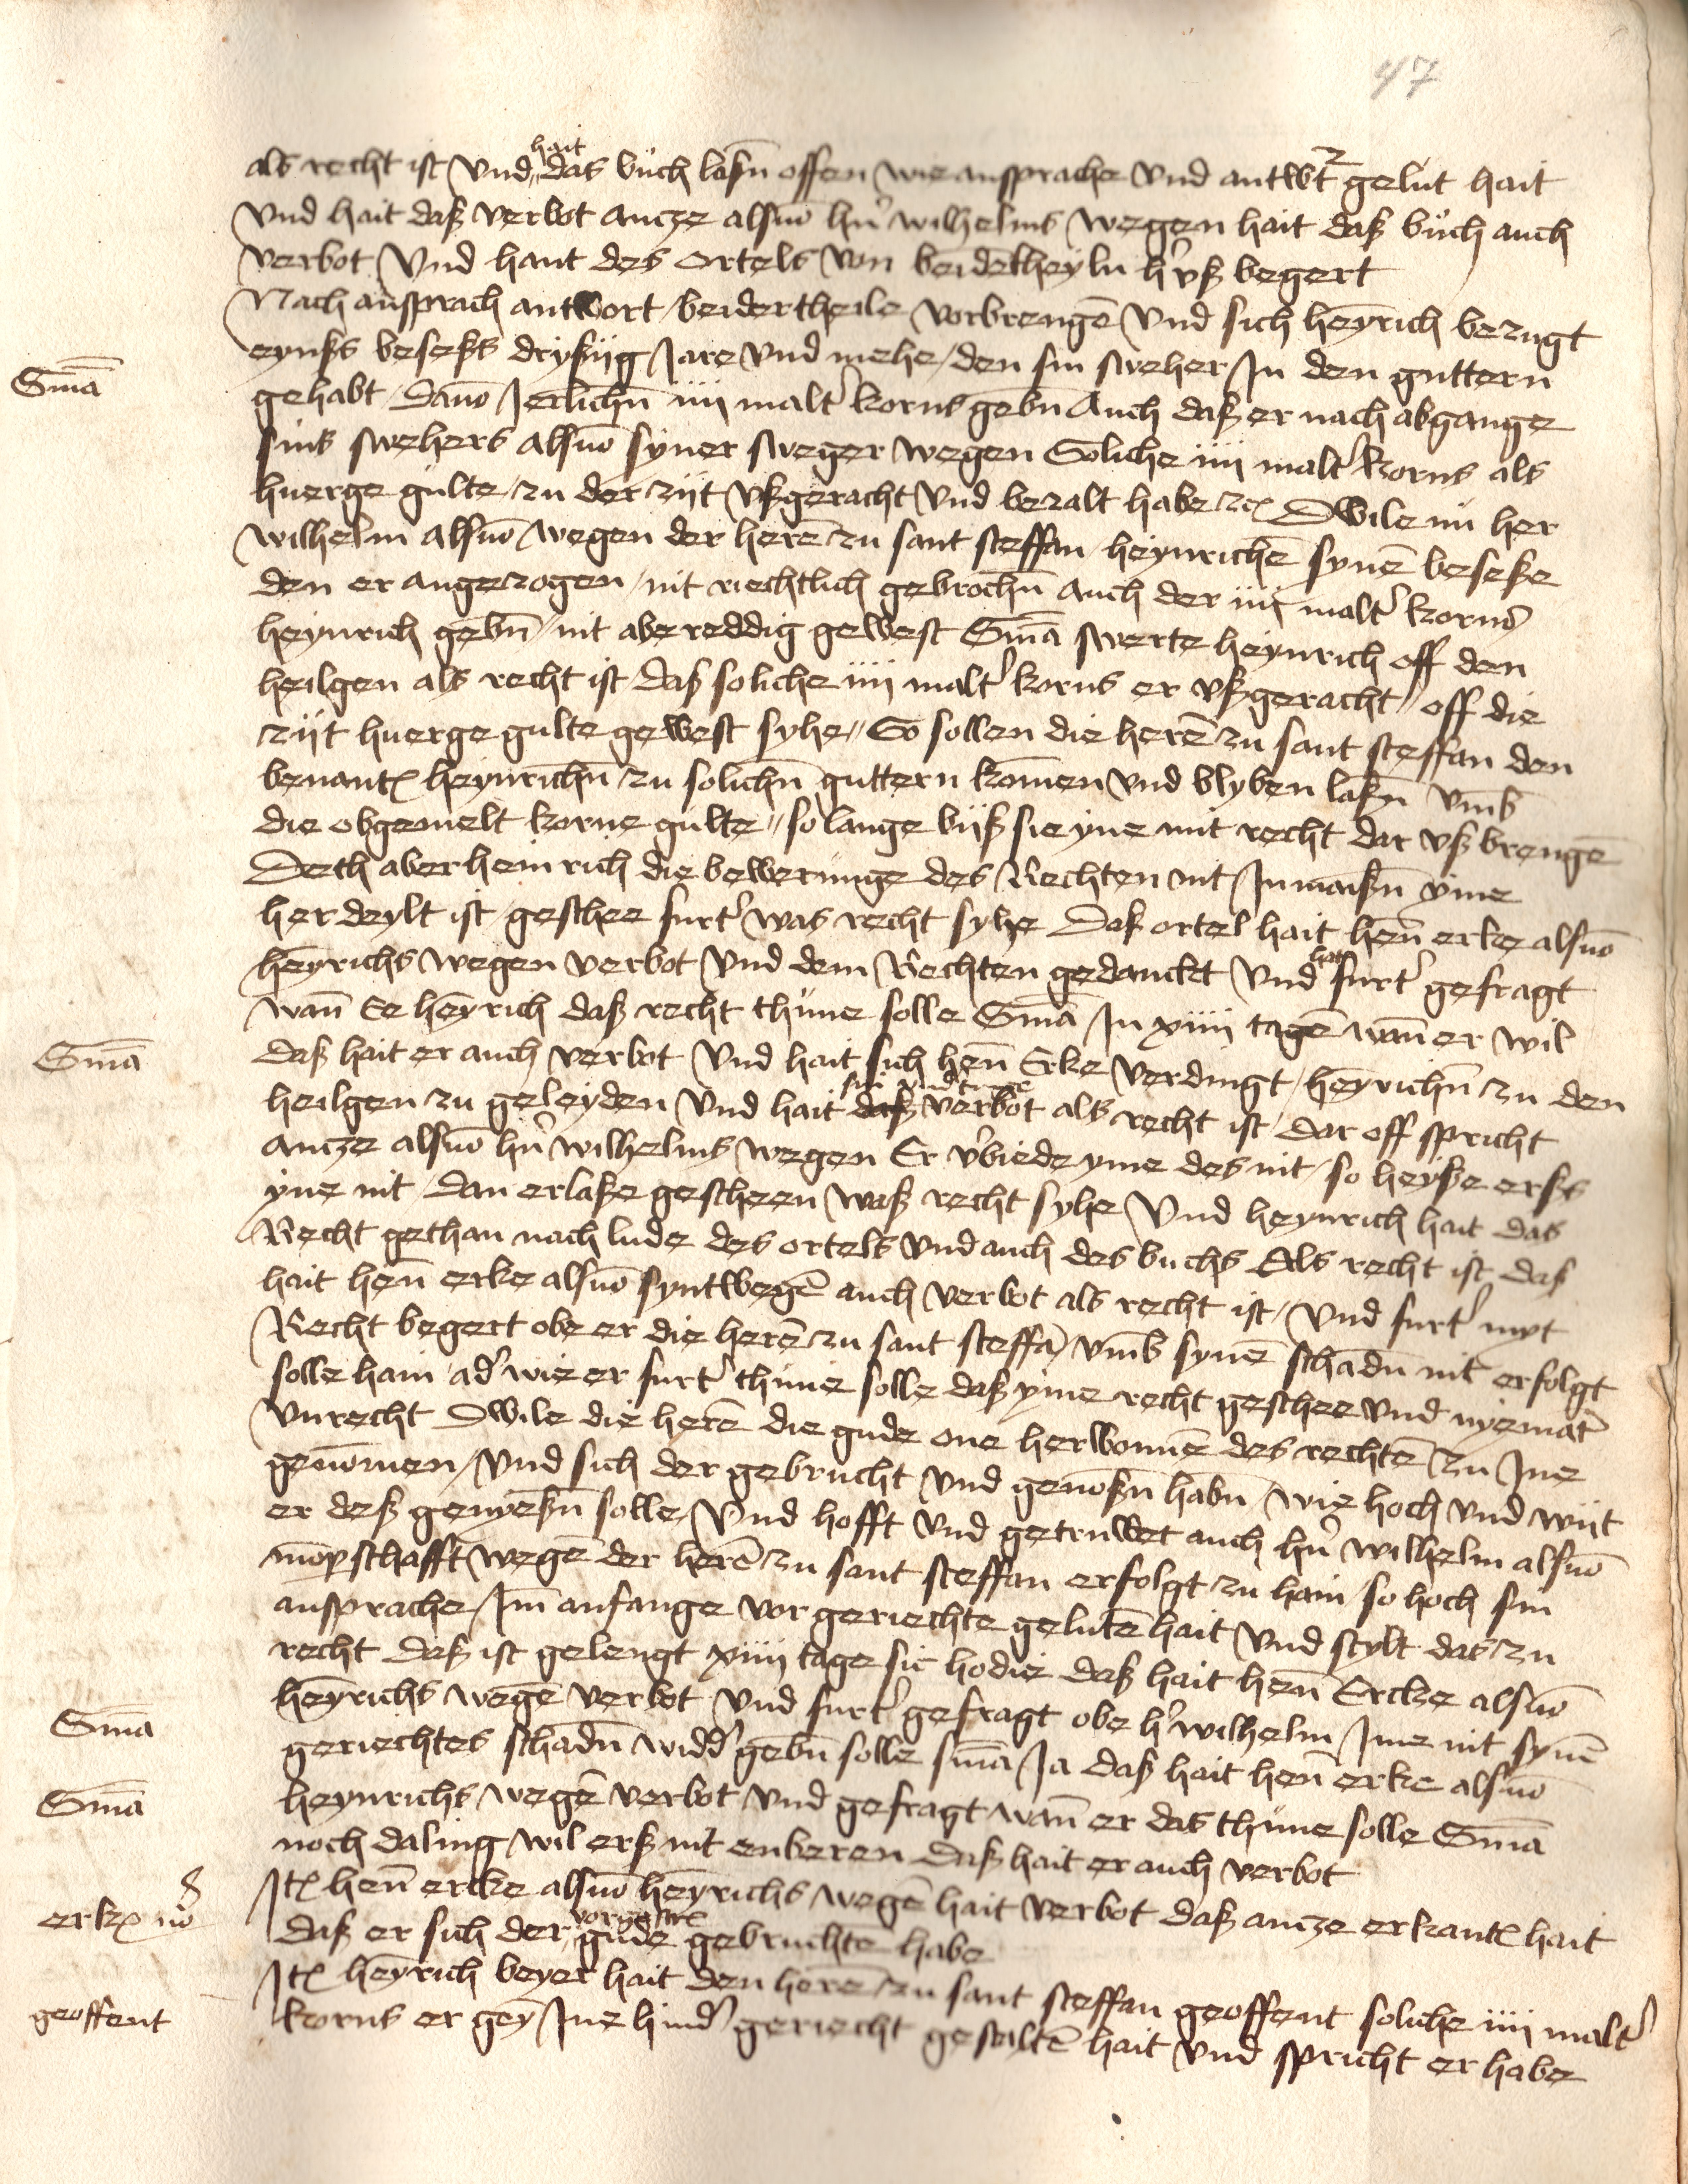 47
als recht ist Vnd hait das bůch lassn̄ offen wie ansprache Vnd antwt̄ gelut hait
Vnd hait daß verbot Ancze alsuō hn̄ wilhelms wegen hait daß bůch auch
verbot Vnd hant des Ortels von beidetheyln h'uß begert
Nach ansprach antwort beidertheile vorbrengē Vnd sich heȳrich bezugt
eynßs beseßs dryßiig Jare Vnd mehe den sin sweher In den guttern
Sm̄a
gehabt dauō Jerlichn̄ iiii malt' korns gebn̄ Auch daß er nach abgange
sins swehers alsuō syner sweger wegen Soliche iiii malt' korns als
huerge gulte zu der zijt vßgeracht Vnd bezalt habe zc Dwile nu her
wilhelm alsuō wegen der herē zu sant steffan heynrichē synē beseße
den er angezogen nit riechtlich gebrochn̄ Auch der iiii malt' korns
heynrich gebn̄ nit abereddig gewest Sm̄a swerte heynrich off den
heilgen als recht ist daß soliche iiii malt' korns er vßgeracht off die
zijt huerge gulte gewest syhe So sollen die herē zu sant steffan den
benant heynrichn̄ zu solichn̄ guttern komen Vnd blyben laßn̄ vm̄b
die obgemelt korne gulte so lange bijß sie yne mit recht dar vß brengē
Deth aber heinrich die bewerunge des Rechten nit Inmaißn̄ yme
herdeylt ist geschee furt' was recht syhe Daß ortel hait hen̄ erke alsuō
heȳrichs wegen verbot Vnd dem Rechten gedanckt Vnd hat furt' gefragt
wan̄ Ee heȳrich daß recht thůne solle Sm̄a In xiiii tagē wan̄ er wil
Sm̄a
daß hait er auch verbot Vnd hait sich hen̄ Erke verdingt heȳrichn̄ zu den
heilgen zu geleyden Vnd hait daß sin verbot als recht ist dar off spricht
Ancze alsuō hn̄ wilhelms wegen Er v'biede yme des nit so heyße erßs
yne nit dan erlaße gescheen waß recht syhe Vnd heynrich hait das
Recht gethan nach lude des ortels Vnd auch des buchs Als recht ist daß
hait hen̄ erke alsuō syntwegē auch verbot als recht ist Vnd furt' myt
Recht begert obe er die herē zu sant steffā vm̄b synē schadn̄ nit erfolgt
solle hain ad' wie er furt' thůne solle daß yme recht geschee Vnd nyemāt
vnrecht Dwile die herē die gude one herwonnē des rechtē zu Ine
genōmen Vnd sich der gebrucht Vnd genoßn̄ habn̄ wie hoch Vnd wijt
er deß genyeßn̄ solle Vnd hofft Vnd getruwet auch hn̄ wilhelm alsuō
mōpschafft wegē der herē zu sant steffan erfolgt zu hain so hoch sin
ansprache Im anfange vor geriechte gelutē hait Vnd stylt das zu
recht daß ist gelengt xiiii tage sic hodie daß hait hen̄ Ercke alsuō
heȳrichs wegē verbot Vnd furt' gefragt obe h' wilhelm Ime nit synē
Sm̄a
geriechtes schadn̄ widd' gebn̄ solle sm̄a Ja daß hait hen̄ erke alsuō
Sm̄a
heynrichs wegē verbot Vnd gefragt wan̄ er das thůne solle Sm̄a
noch daling wil erß nit enberen daß hait er auch verbot
Itē hen̄ ercke alsuō heȳrichs wegē hait verbot daß Ancze erkant hait
erk
daß er sich der gude gebruchte habe
Itē heȳrich beyer hait den herē zu sant steffan geoffent soliche iiii malt'
geoffent
korns er geȳ Ine hind' geriecht gestaltē hait Vnd spricht er habe